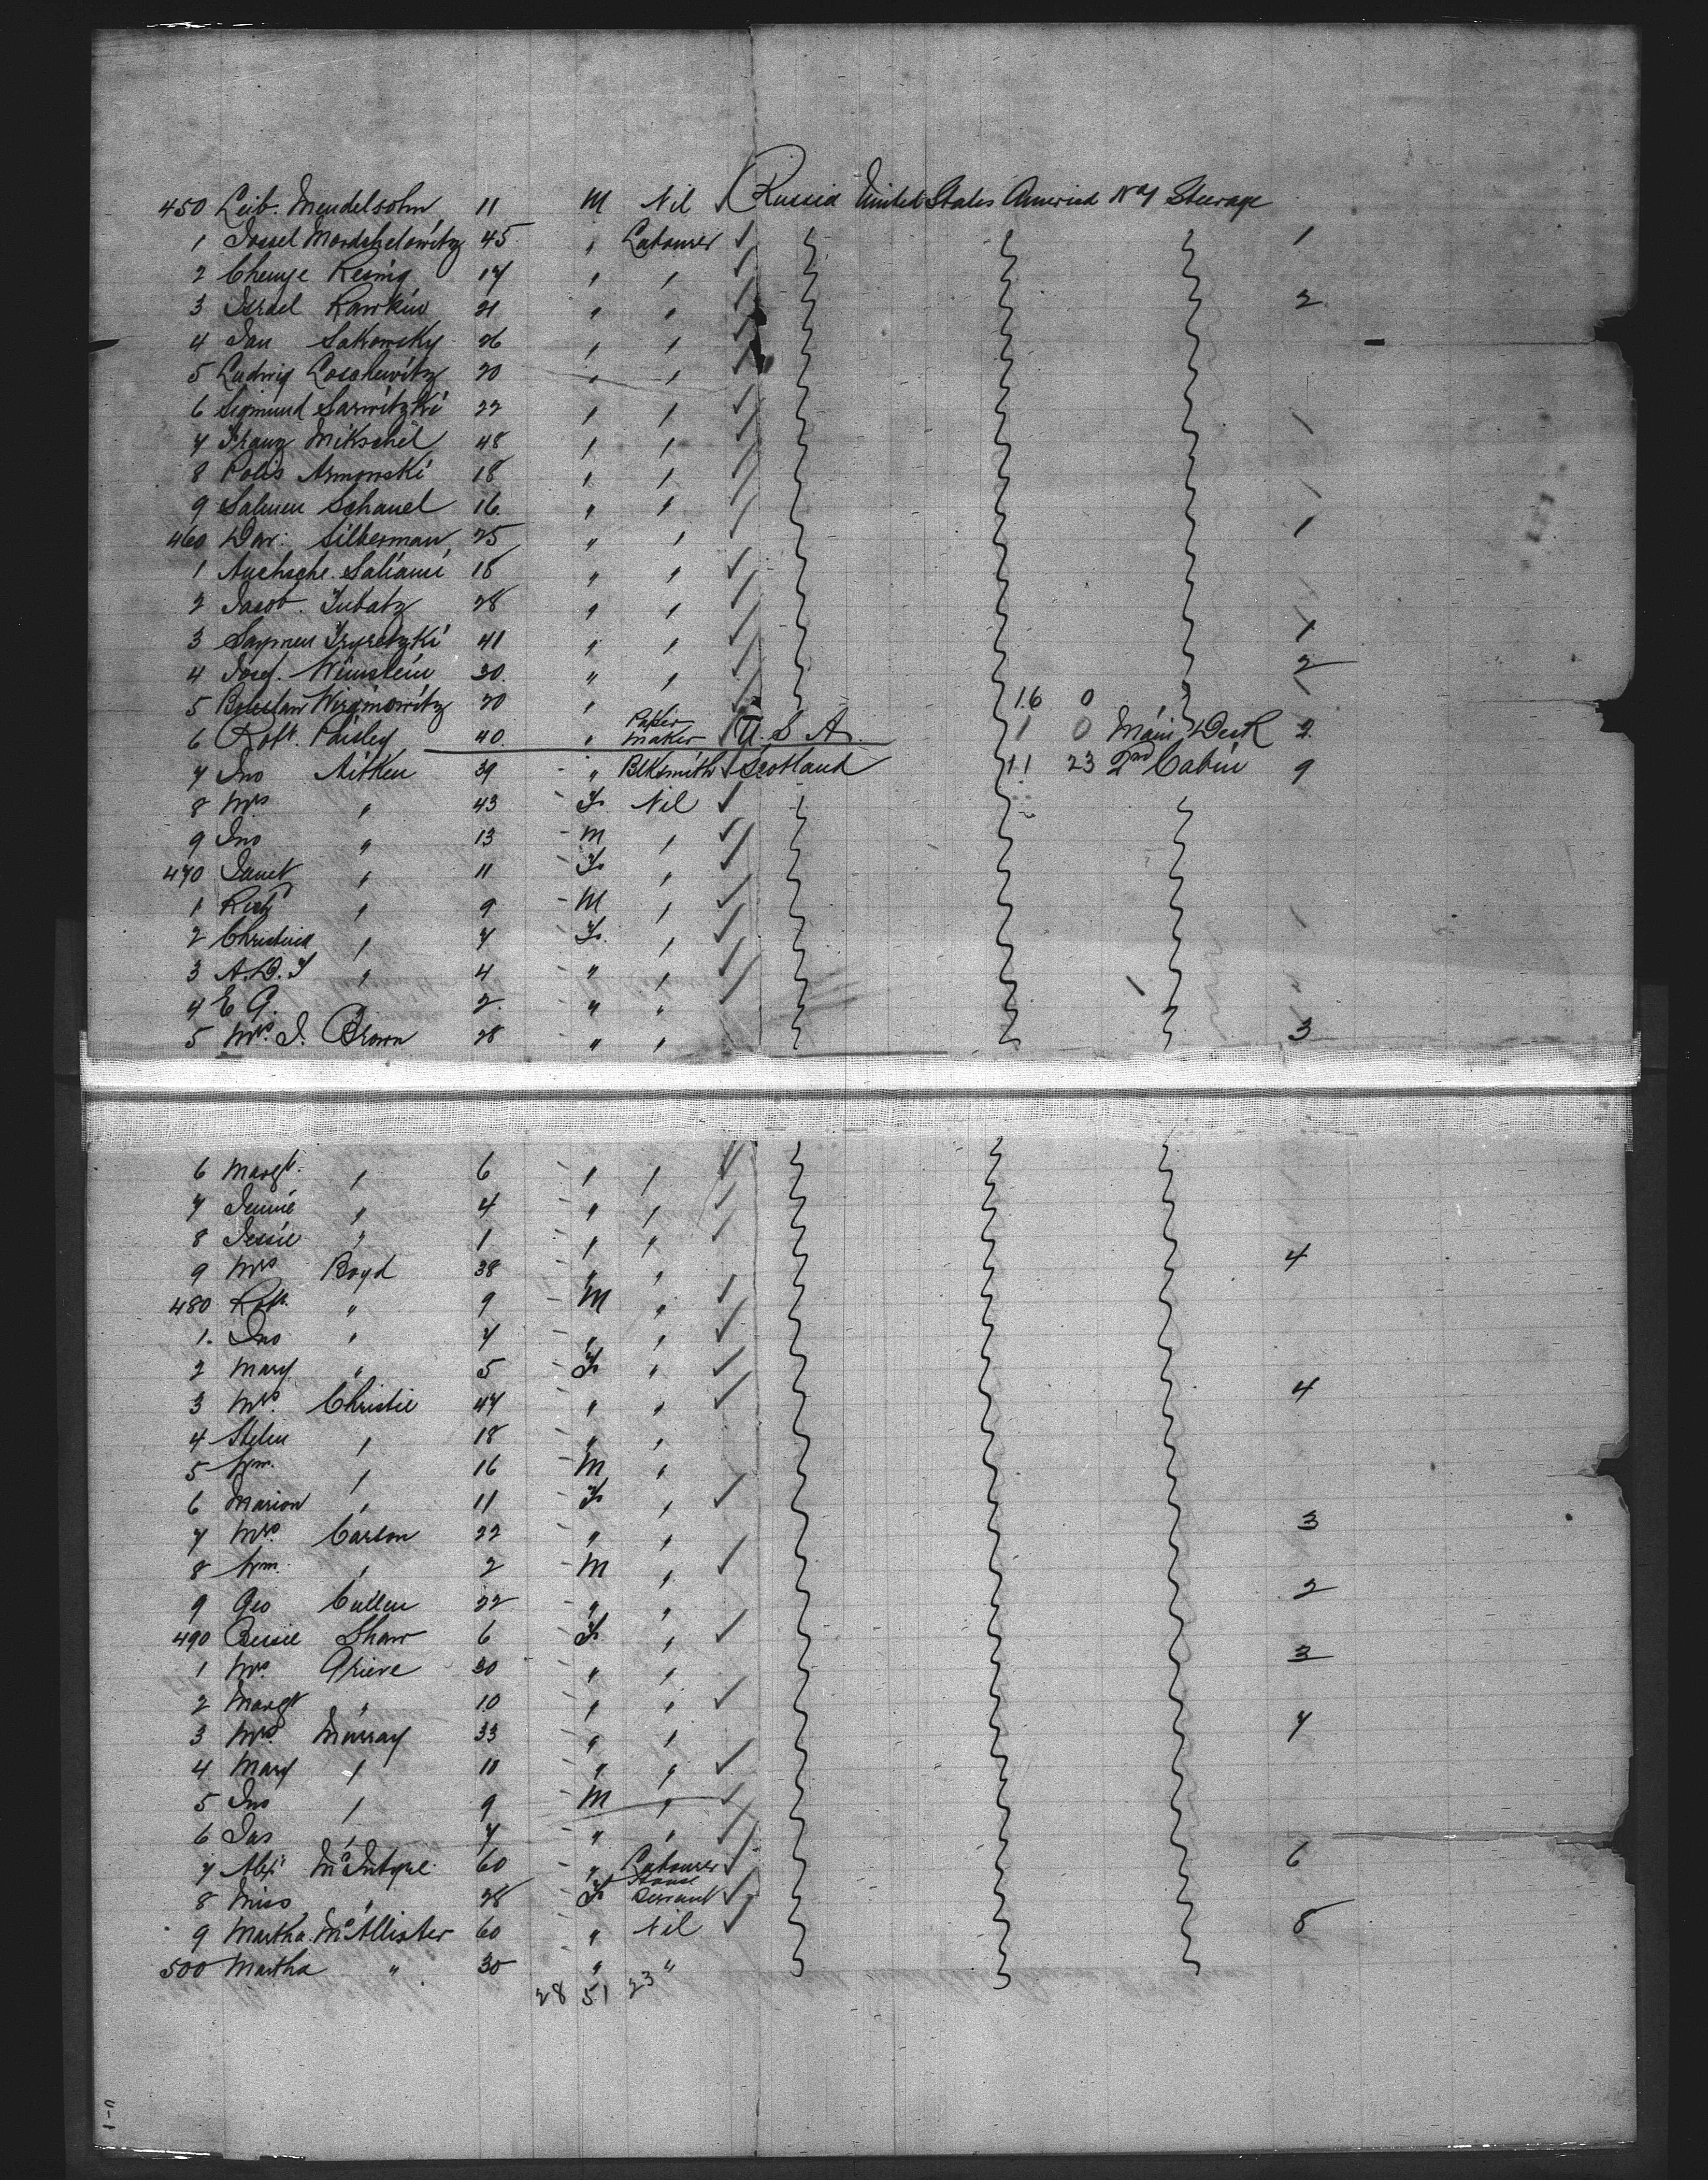 450 Leib. Mendelsohn 11 M Nil Russia United States America No 1 Steerage
1 Jossel Mordchelowitz 45 " Labourer 1
2 Chemje Resnig 17 " "
3 Israel Rawkin 21 " " 2
4 Jan Sakowsky 26 " "
5 Ludwig Loschewitz 20 " "
6 Sigmund Sarwitzki 22 " "
7 Franz Mikschel 48 " "
8 Polis Armowski 18 " "
9 Salmen Schanel 16 " "
460 Dav: Silberman 25 " " 1
1 Saliami 18 " "
2 Jacob. Jubatz 28 " "
3 41 " " 1
4 Josef. Weinstein 30. " " 2
5 20 " 16 0
6 Robt. Paisley 40. " Paper Maker U. S. A. 1 0 Main Deck 2
7 Jno Aitken 39 - " Blksmith Scotland 11 23 2nd Cabin 9
8 Mrs " 43 - F. Nil
9 Jno " 13 - M "
470 Janet " 11 - F. "
1 Richd " 9 - M "
2 Christina " 7 - F. "
3 A. D. J " 4 - " "
4 E G. 2. - " "
5 Mrs. J. Brown 28 " " 3
6 Margt. " 6 - " "
7 Jennie " 4 - " "
8 Jessie " 1 - " "
9 Mrs Boyd 38 - " " 4
480 Robt. " 9 - M "
1. Jno " 7 - " "
2 Mary " 5 - F. "
3 Mrs. Christie 47 - " " 4
4 Helen " 18 - " "
5 Wm. " 16 - M "
6 Marion " 11 - F. "
7 Mrs. Carson 22 - " " 3
8 Wm. " 2 - M "
9 Geo Cullen 22 - " " 2
490 Bessie Shaw 6 - F. "
1 Mrs. Grieve 30 - " " 3
2 Margt " 10 - " "
3 Mrs. Murray 33 - " " 7
4 Mary " 10 - " "
5 Jno " 9 - M "
6 Jas " 7 - " "
7 Alex McIntyre 60 - " Labourer 6
8 Miss " 28 - F. House Servant
9 Martha McAllister 60 " Nil 8
500 Martha " 30 " "
28 51 23